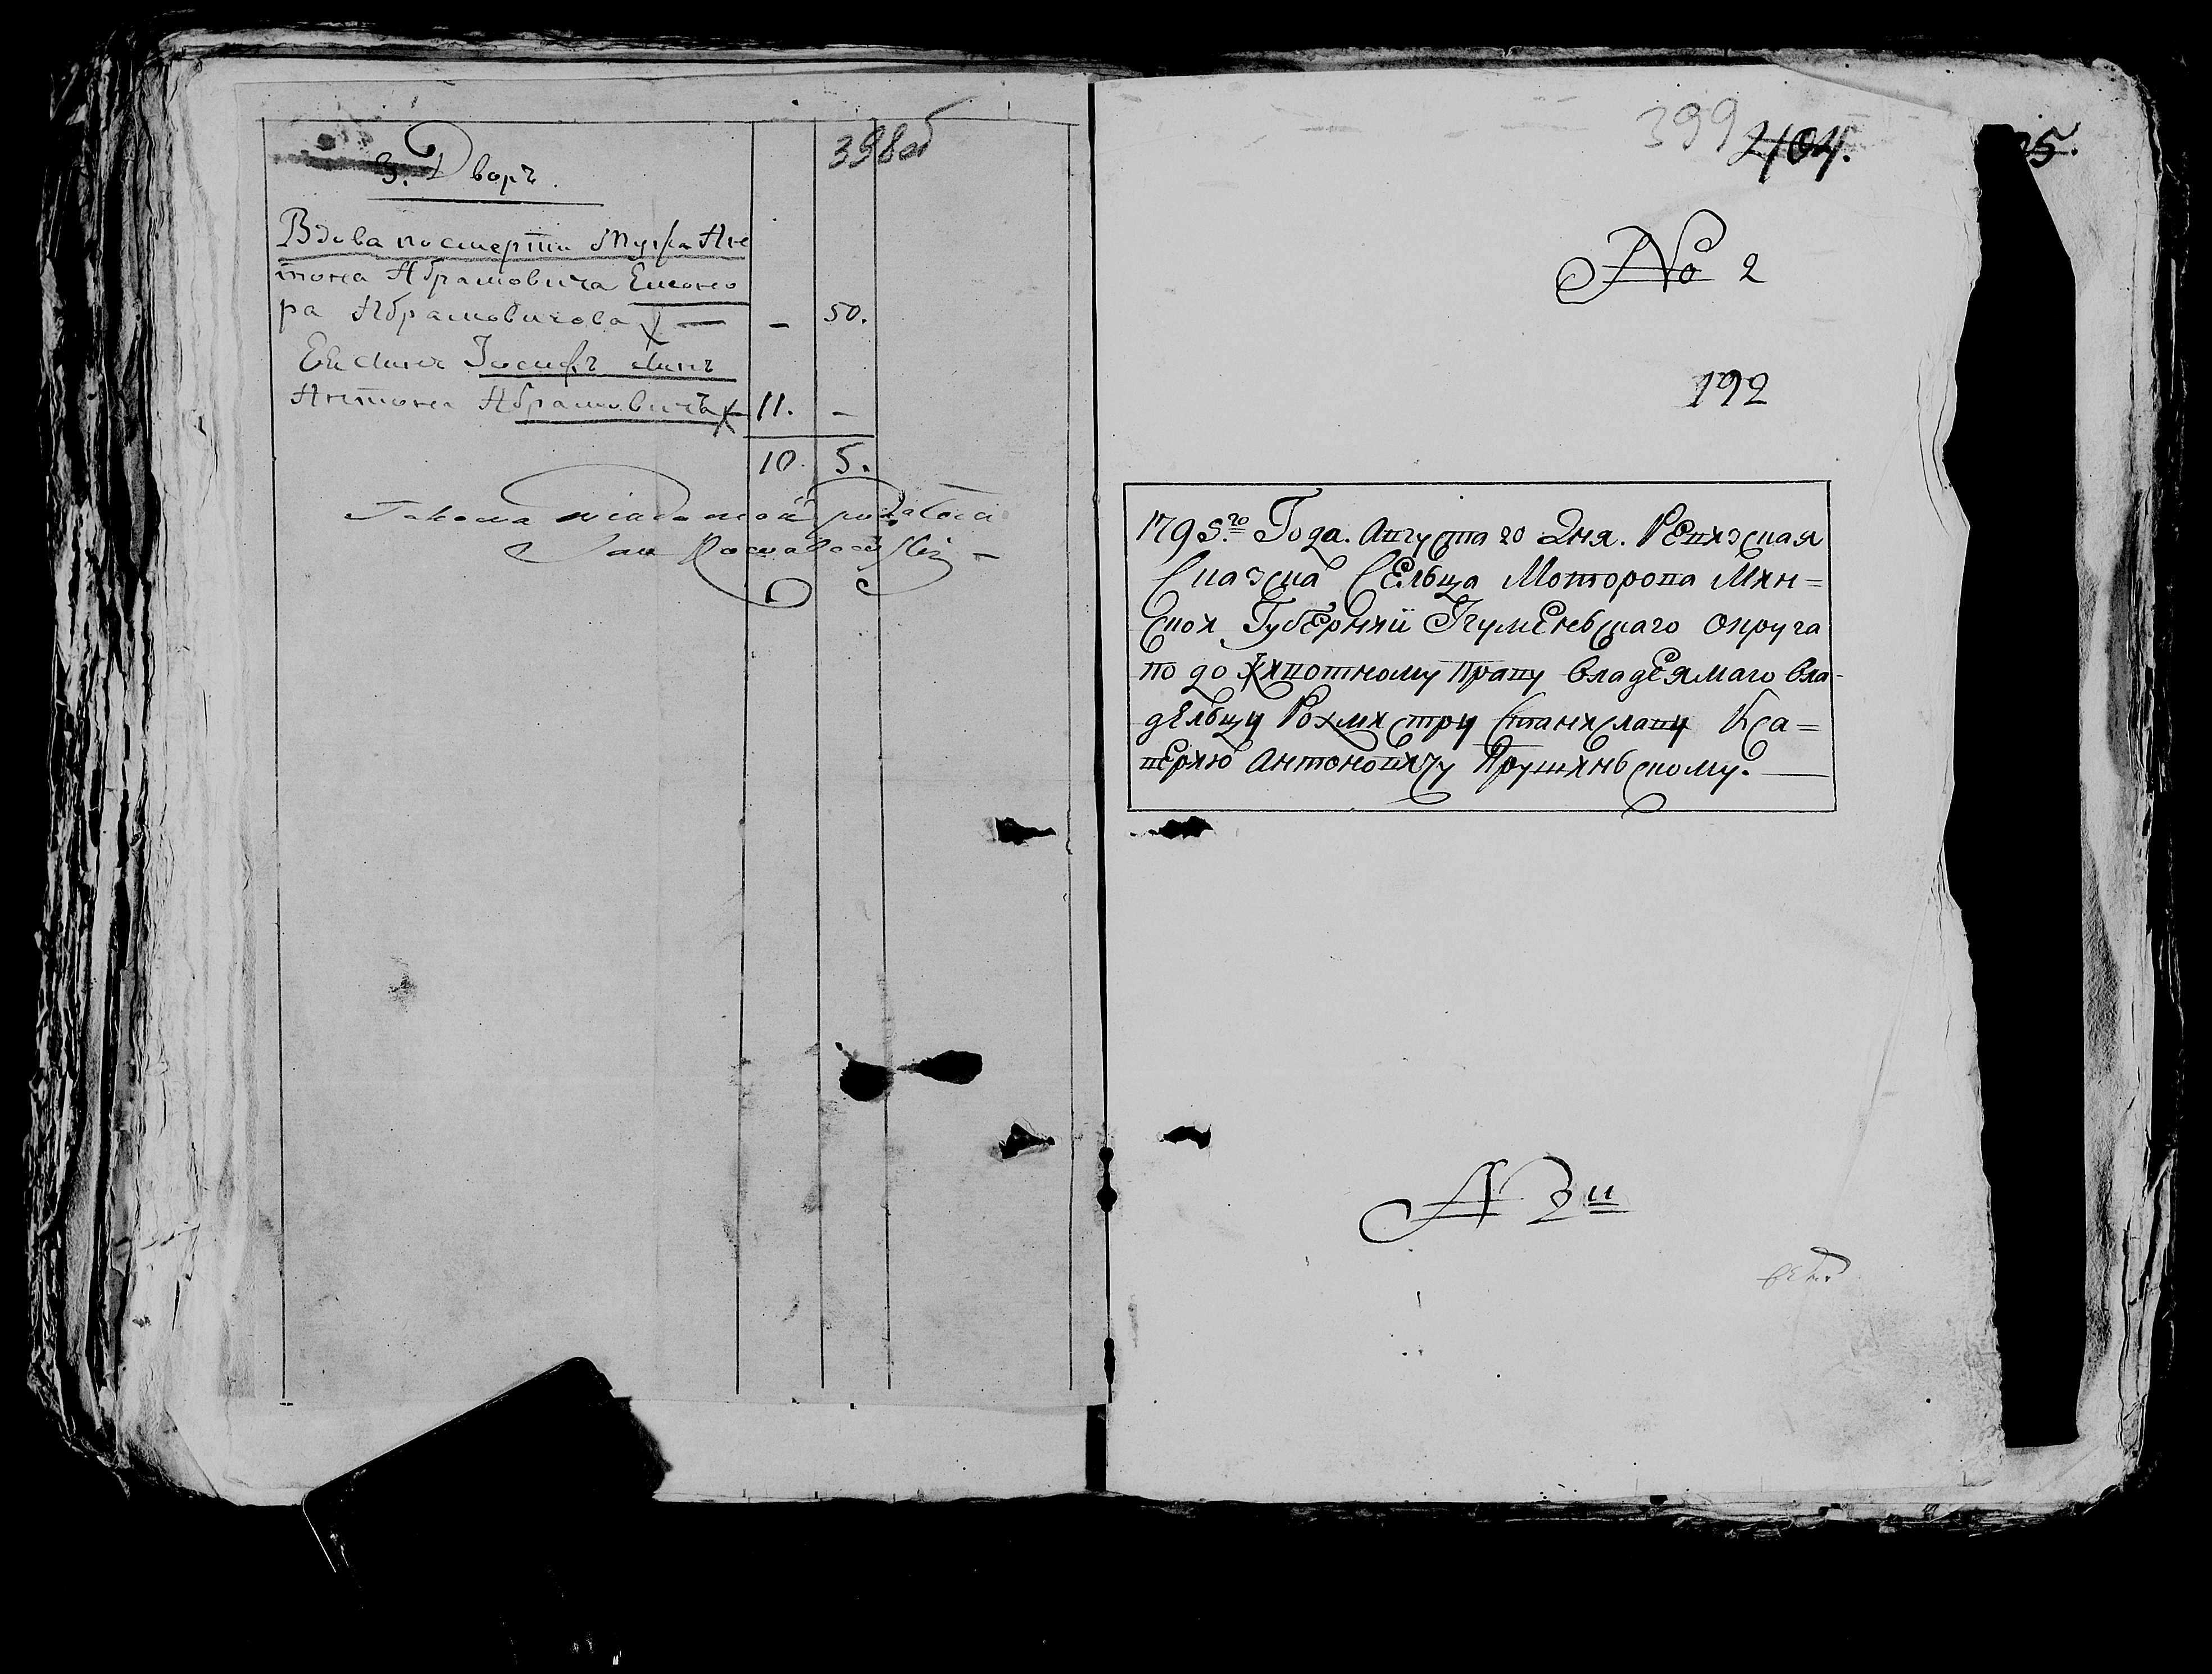 398об
3. Дворъ.
Вдова по смерти Мужа Ан
тона Абрамовича Елеоно
ра Абрамовичова — - 50.
Ея Сынъ Іосифъ Сынъ
Антона Абрамовичъ 11. -
10. 5.
Jan
399 404.
5.
No 2
192
1795.го Года. Августа 20 Дня. Ревизская
Сказка Сельца Моторова Мин=
ской Губернии Игуменьскаго Округа
по до животному праву владеямаго вла-
дельцу Рохмистру Станиславу Кса=
верию Антоновичу Прушиньскому. —
N 2